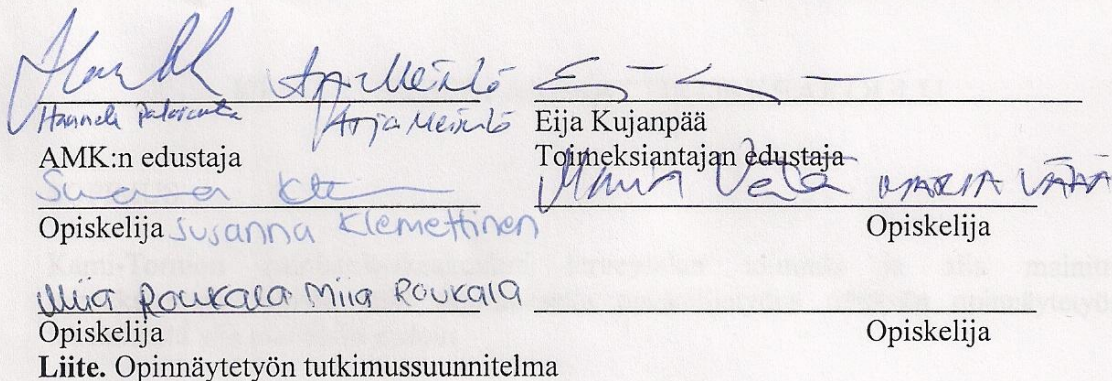 Arja Meinilö
Hannele Paloranta Arja Meinilö Eija Kujanpää
AMK:n edustaja Toimeksiantajan edustaja
Maria Väää MARIA VÄÄÄ
Opiskelija Susanna Klemettinen Opiskelija
Miia Roukala Miia Roukala
Opiskelija Opiskelija
Liite. Opinnäytetyön tutkimussuunnitelma